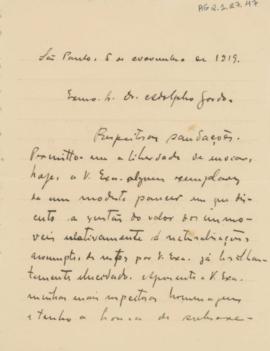 AG 2.2.27.47
São Paulo, 5 de novembro de 1919.
Exmo. Sr. Dr. Adolpho Gordo.
Respeitosas saudações.
Permitto-me a liberdade de enviar,
hoje, a V. Exa. alguns exemplares
de um modesto parecer em que dis-
cuto a questão do valor dos immo-
veis relativamente á naturalização,
assumpto de por V. Exa. já brilhan-
temente elucidado. Apresento a V. Exa.
minhas mais respeitosas homenagens
e tenho a honra de subscre-